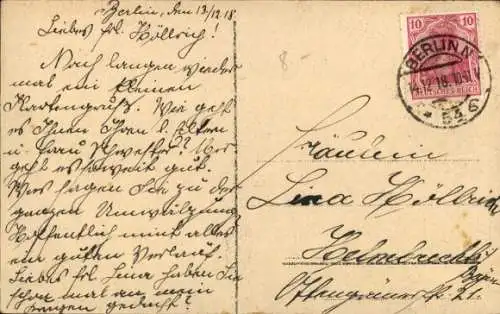 Berlin, den 13/12.18
Liebes frl. Höllrich!
Nach langem wieder
mal ein kleinen
Kartengruß. Wie geht
es Ihnen Ihren l. Eltern
u. frau Schwester? Mir
geht es soweit gut.
Was sagen Sie zu der
ganzen Umwälzung
Hoffentlich nimt alles
ein guten Verlauf.
Liebes frl. Lina haben Sie
schon mal an mein
gedacht?
8-
10 10
DEUTSCHES REICH
BERLIN N
14.12.18.10-11 V
* 54 b
Fräulein
Lina Höllrich
Helmbrechts
Bayern